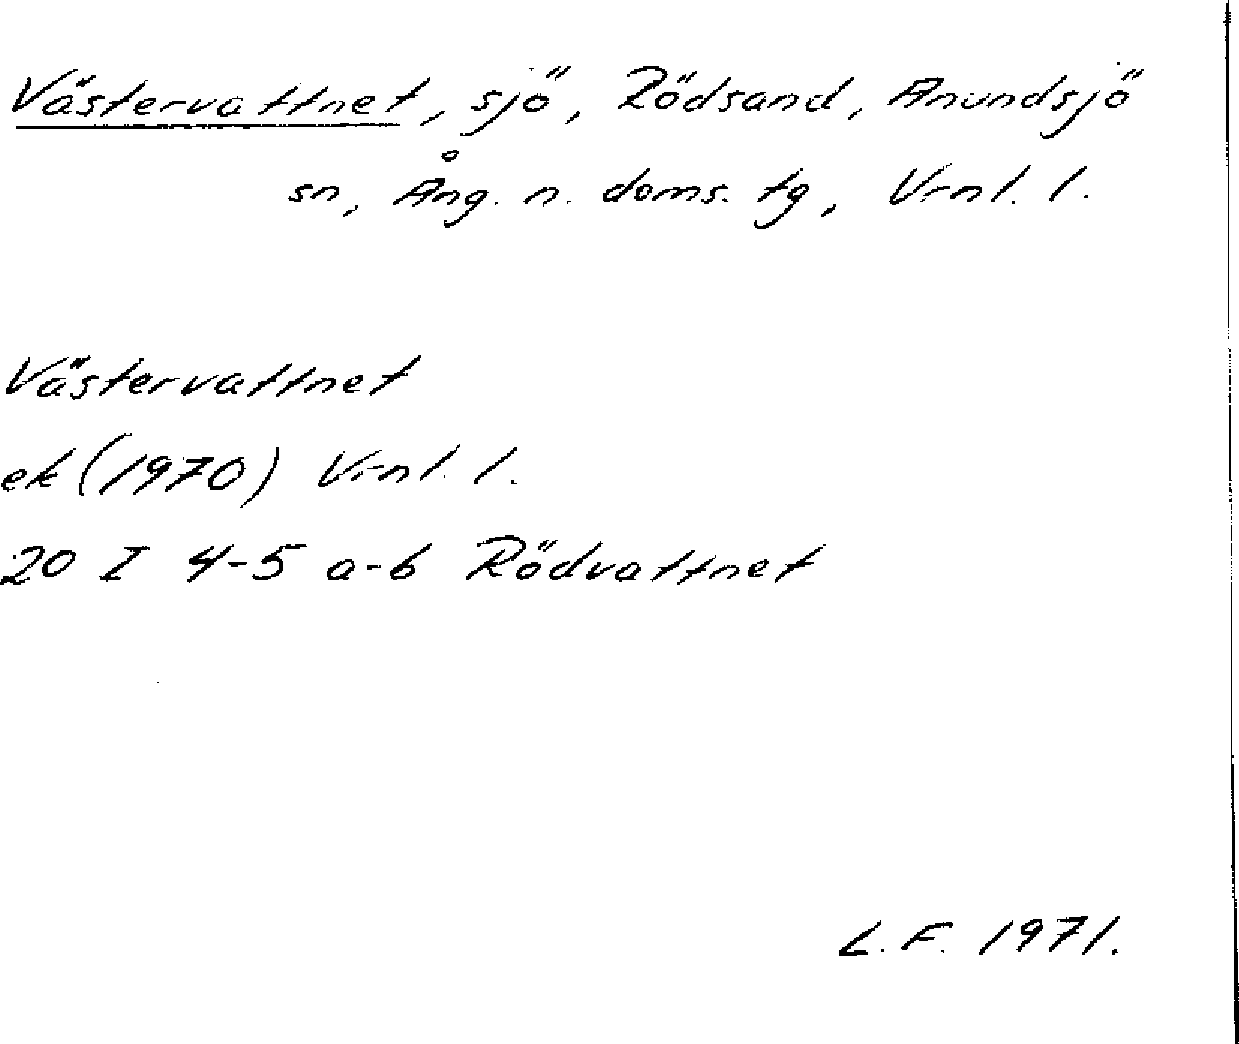 Västervattnet, sjö, Rödsand, Anundsjö
sn, Ång. n. doms. tg, Vrnl. l.
Västervattnet
ek (1970) Vrnl. l.
20 I 4-5 a-b Rödvattnet
L. F. 1971.